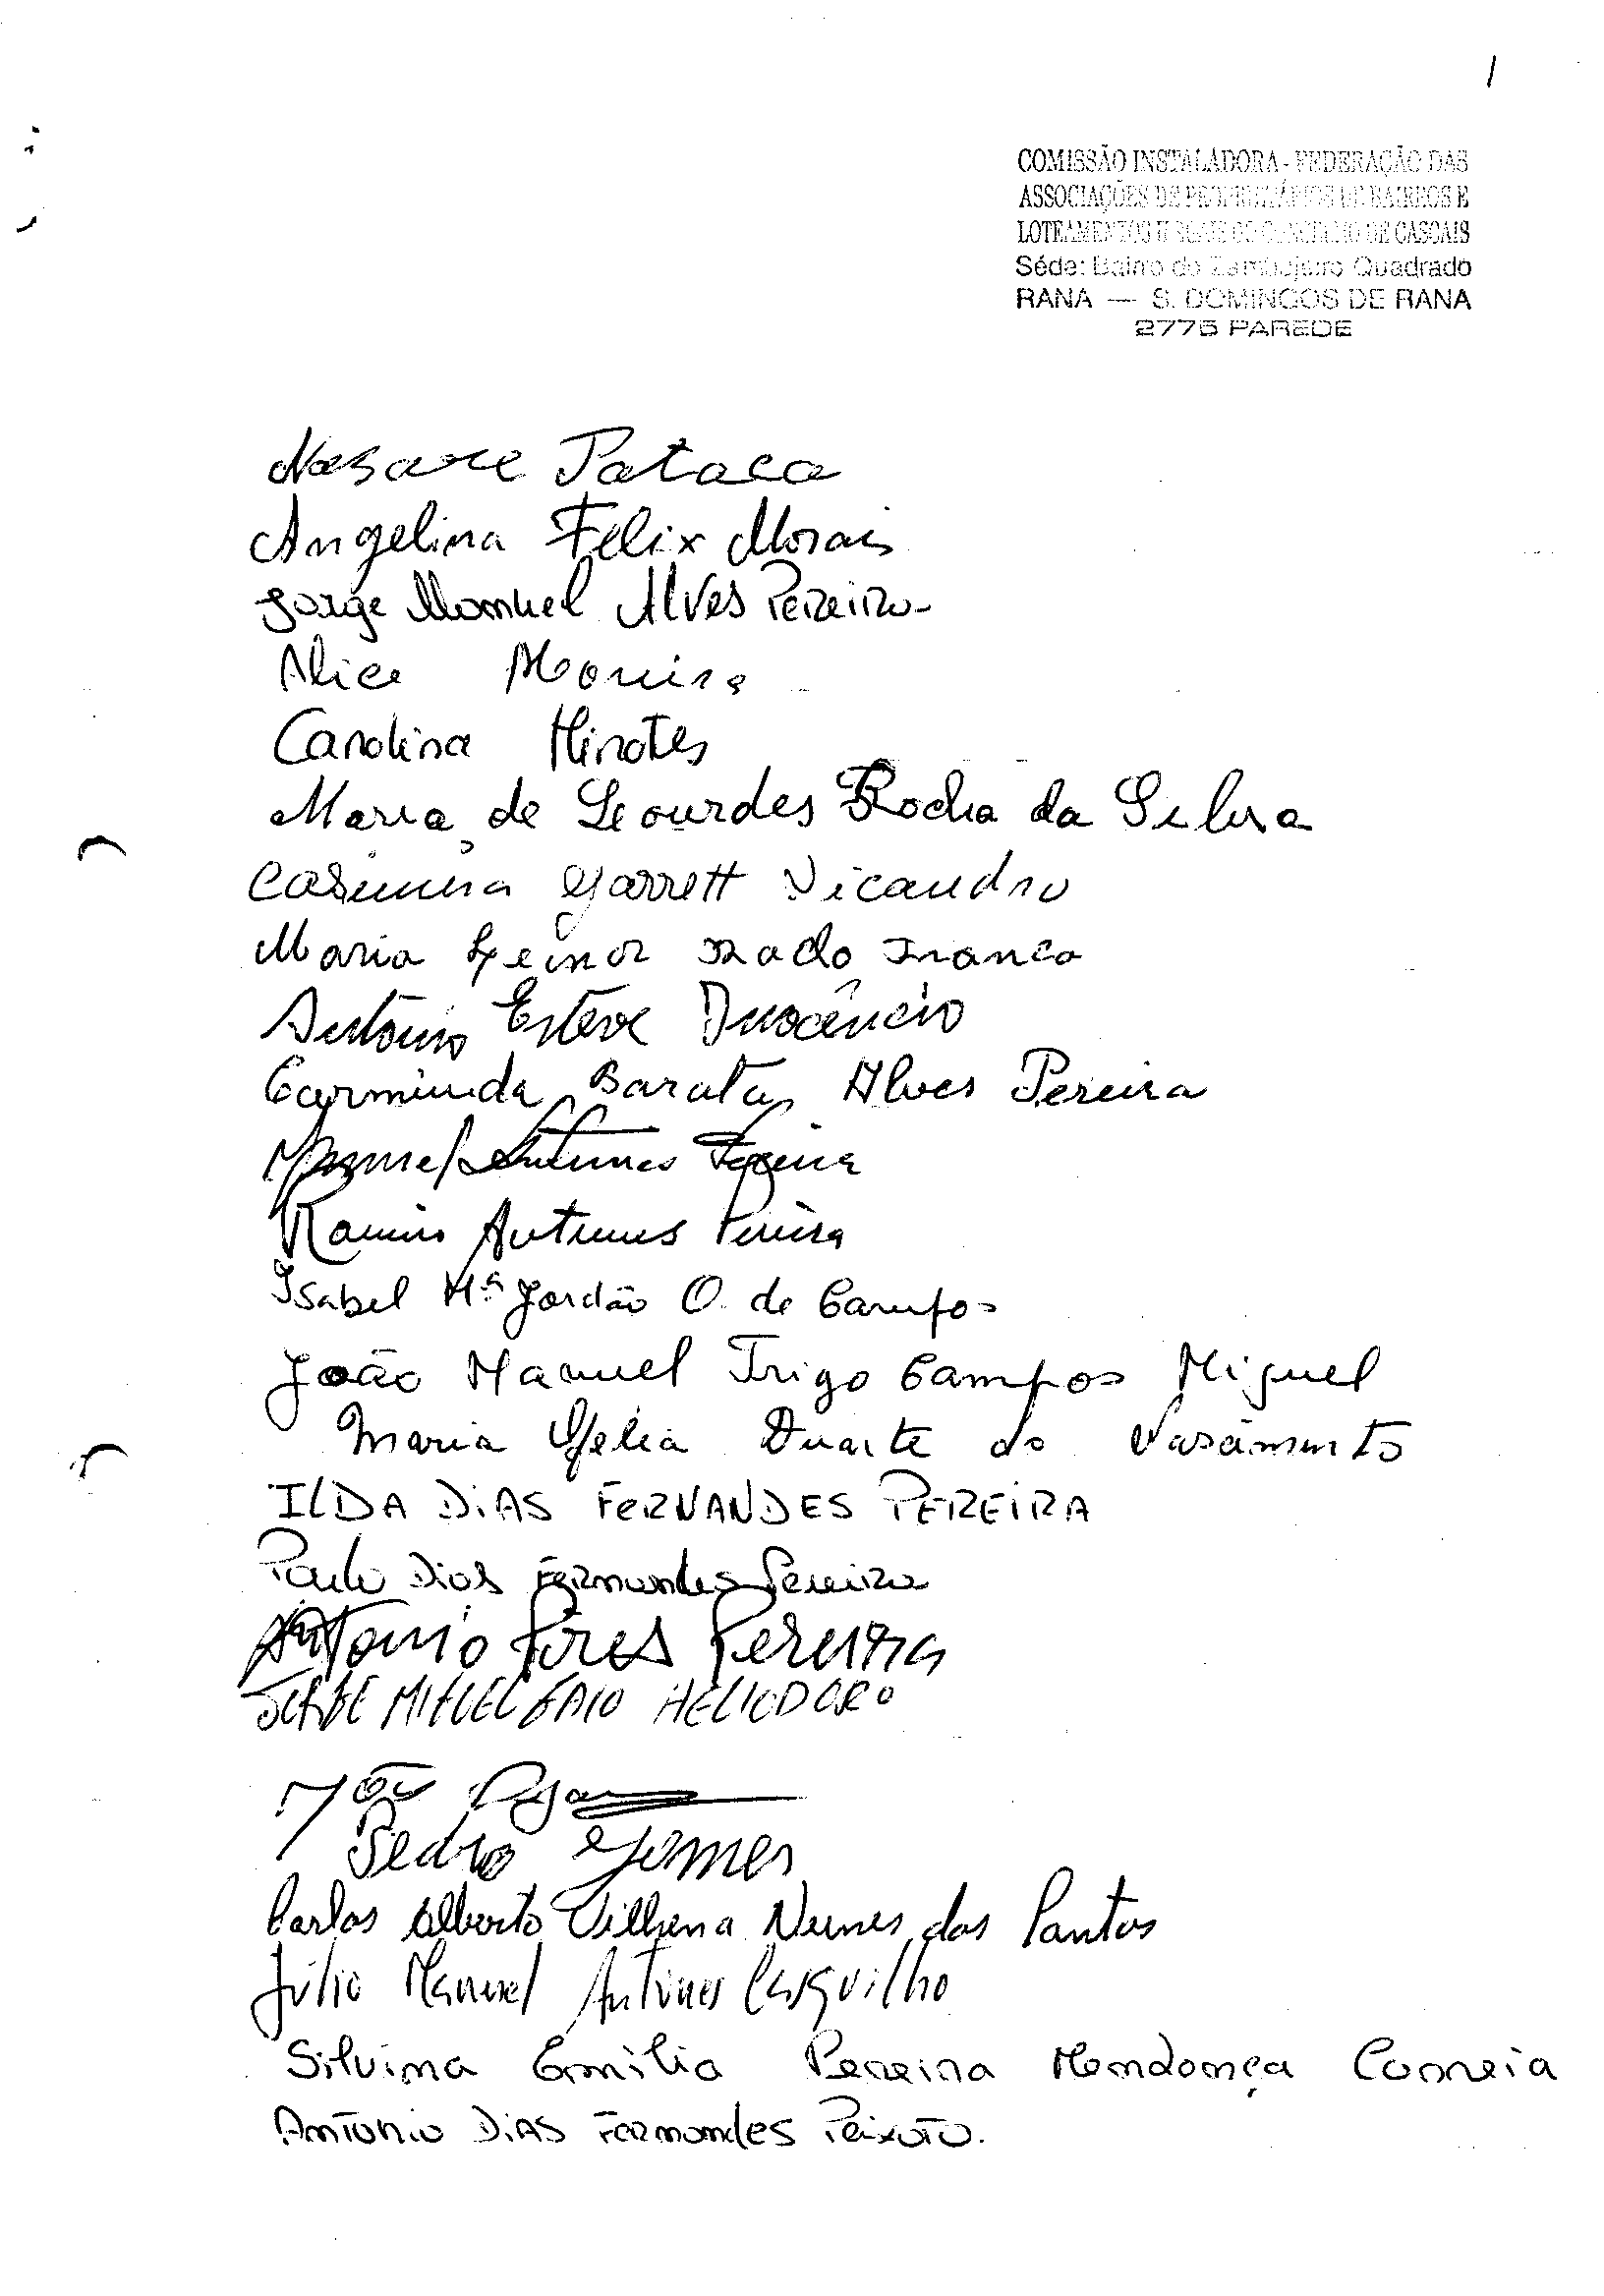 1
COMISSÃO INSTALADORA - FEDERAÇÃO DAS
ASSOCIAÇÕES DE PROPRIETÁRIOS DE BAIRROS E
LOTEAMENTOS ILEGAIS DO CONCELHO DE CASCAIS
Séde: Bairro do Zambujeiro Quadrado
RANA — S. DOMINGOS DE RANA
2775 PAREDE
Nasare Pataca
Angelina Felix Morais
Jorge Manuel Alves Pereira
Alice
Carolina Minotes
Maria de Lourdes Rocha da Silva
Casimira Garrett Nicandro
Maria Franca
António Esteve Inocêncio
Carminda Barata Alves Pereira
Manuel Antunes
Ramiro Antunes Pereira
Isabel Mª Jordão O. de Campos
João Manuel Trigo Campos Miguel
Maria Ofelia Duarte do
ILDA DiAS FeRNANDES PEREIRA
Paulo Dias Fernandes Pereira
António Pires Pereira
JORGE MIGUEL GAIO HELIODORO
João
Pedro Gomes
Carlos Alberto Vilhena Nunes dos Santos
Júlio Manuel Antunes Casquilho
Silvina Emilia Pereira Mendonça Correia
Antonio DiAS Fernandes Peixoto.